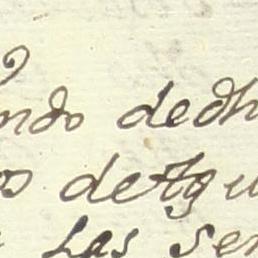 ndo dedh
os de Agu
las ser